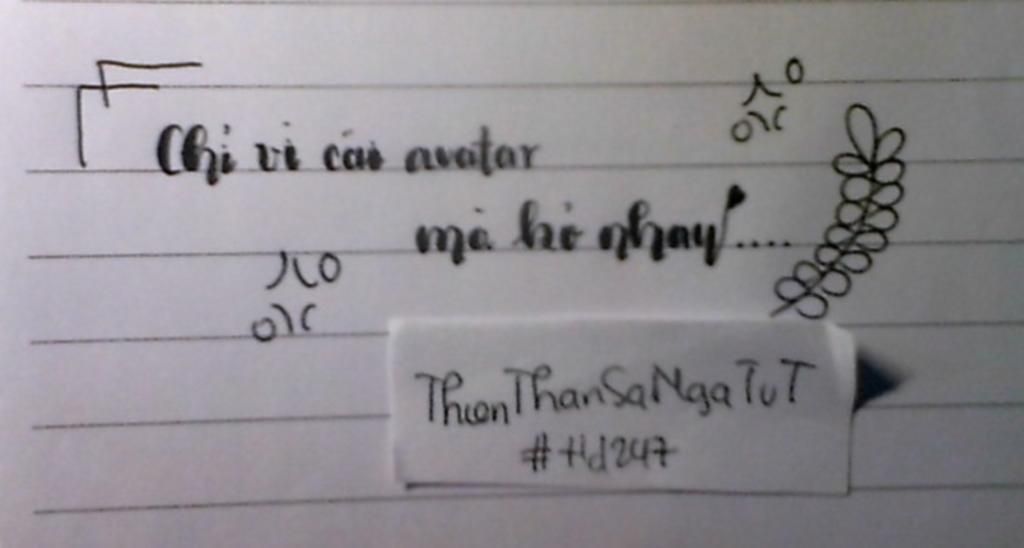 Chỉ vì cái avatar
mà bỏ nhau....
ThienThanSaNgaTuT
#Hd247